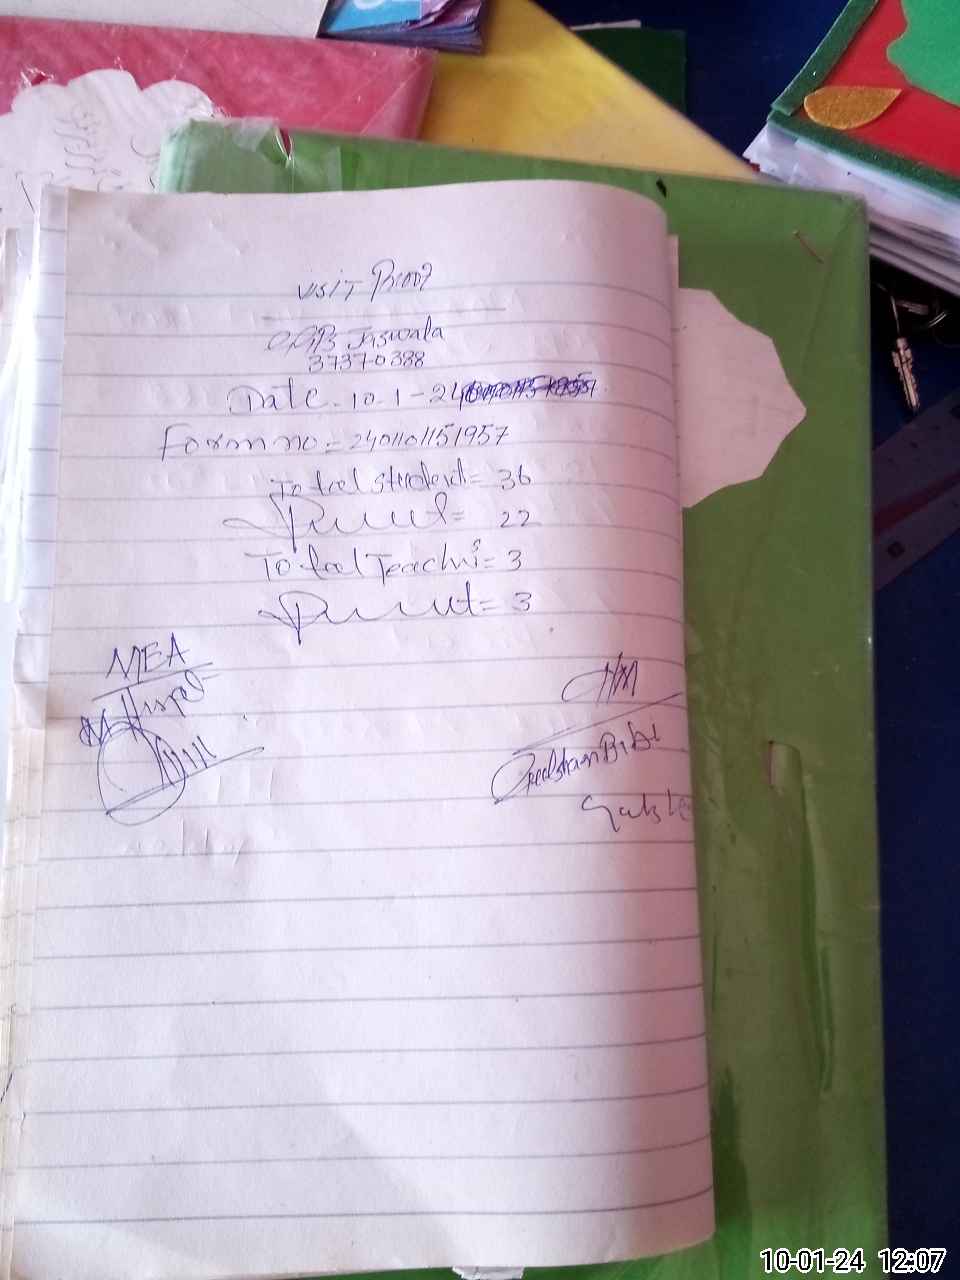 Visit Proof
GGPS Jaswala
37370388
Date. 10-1-24
Form no = 2401101151957
Total Student = 36
Present = 22
Total Teacher = 3
Present = 3
MEA
HM
Bibi
10-01-24 12:07